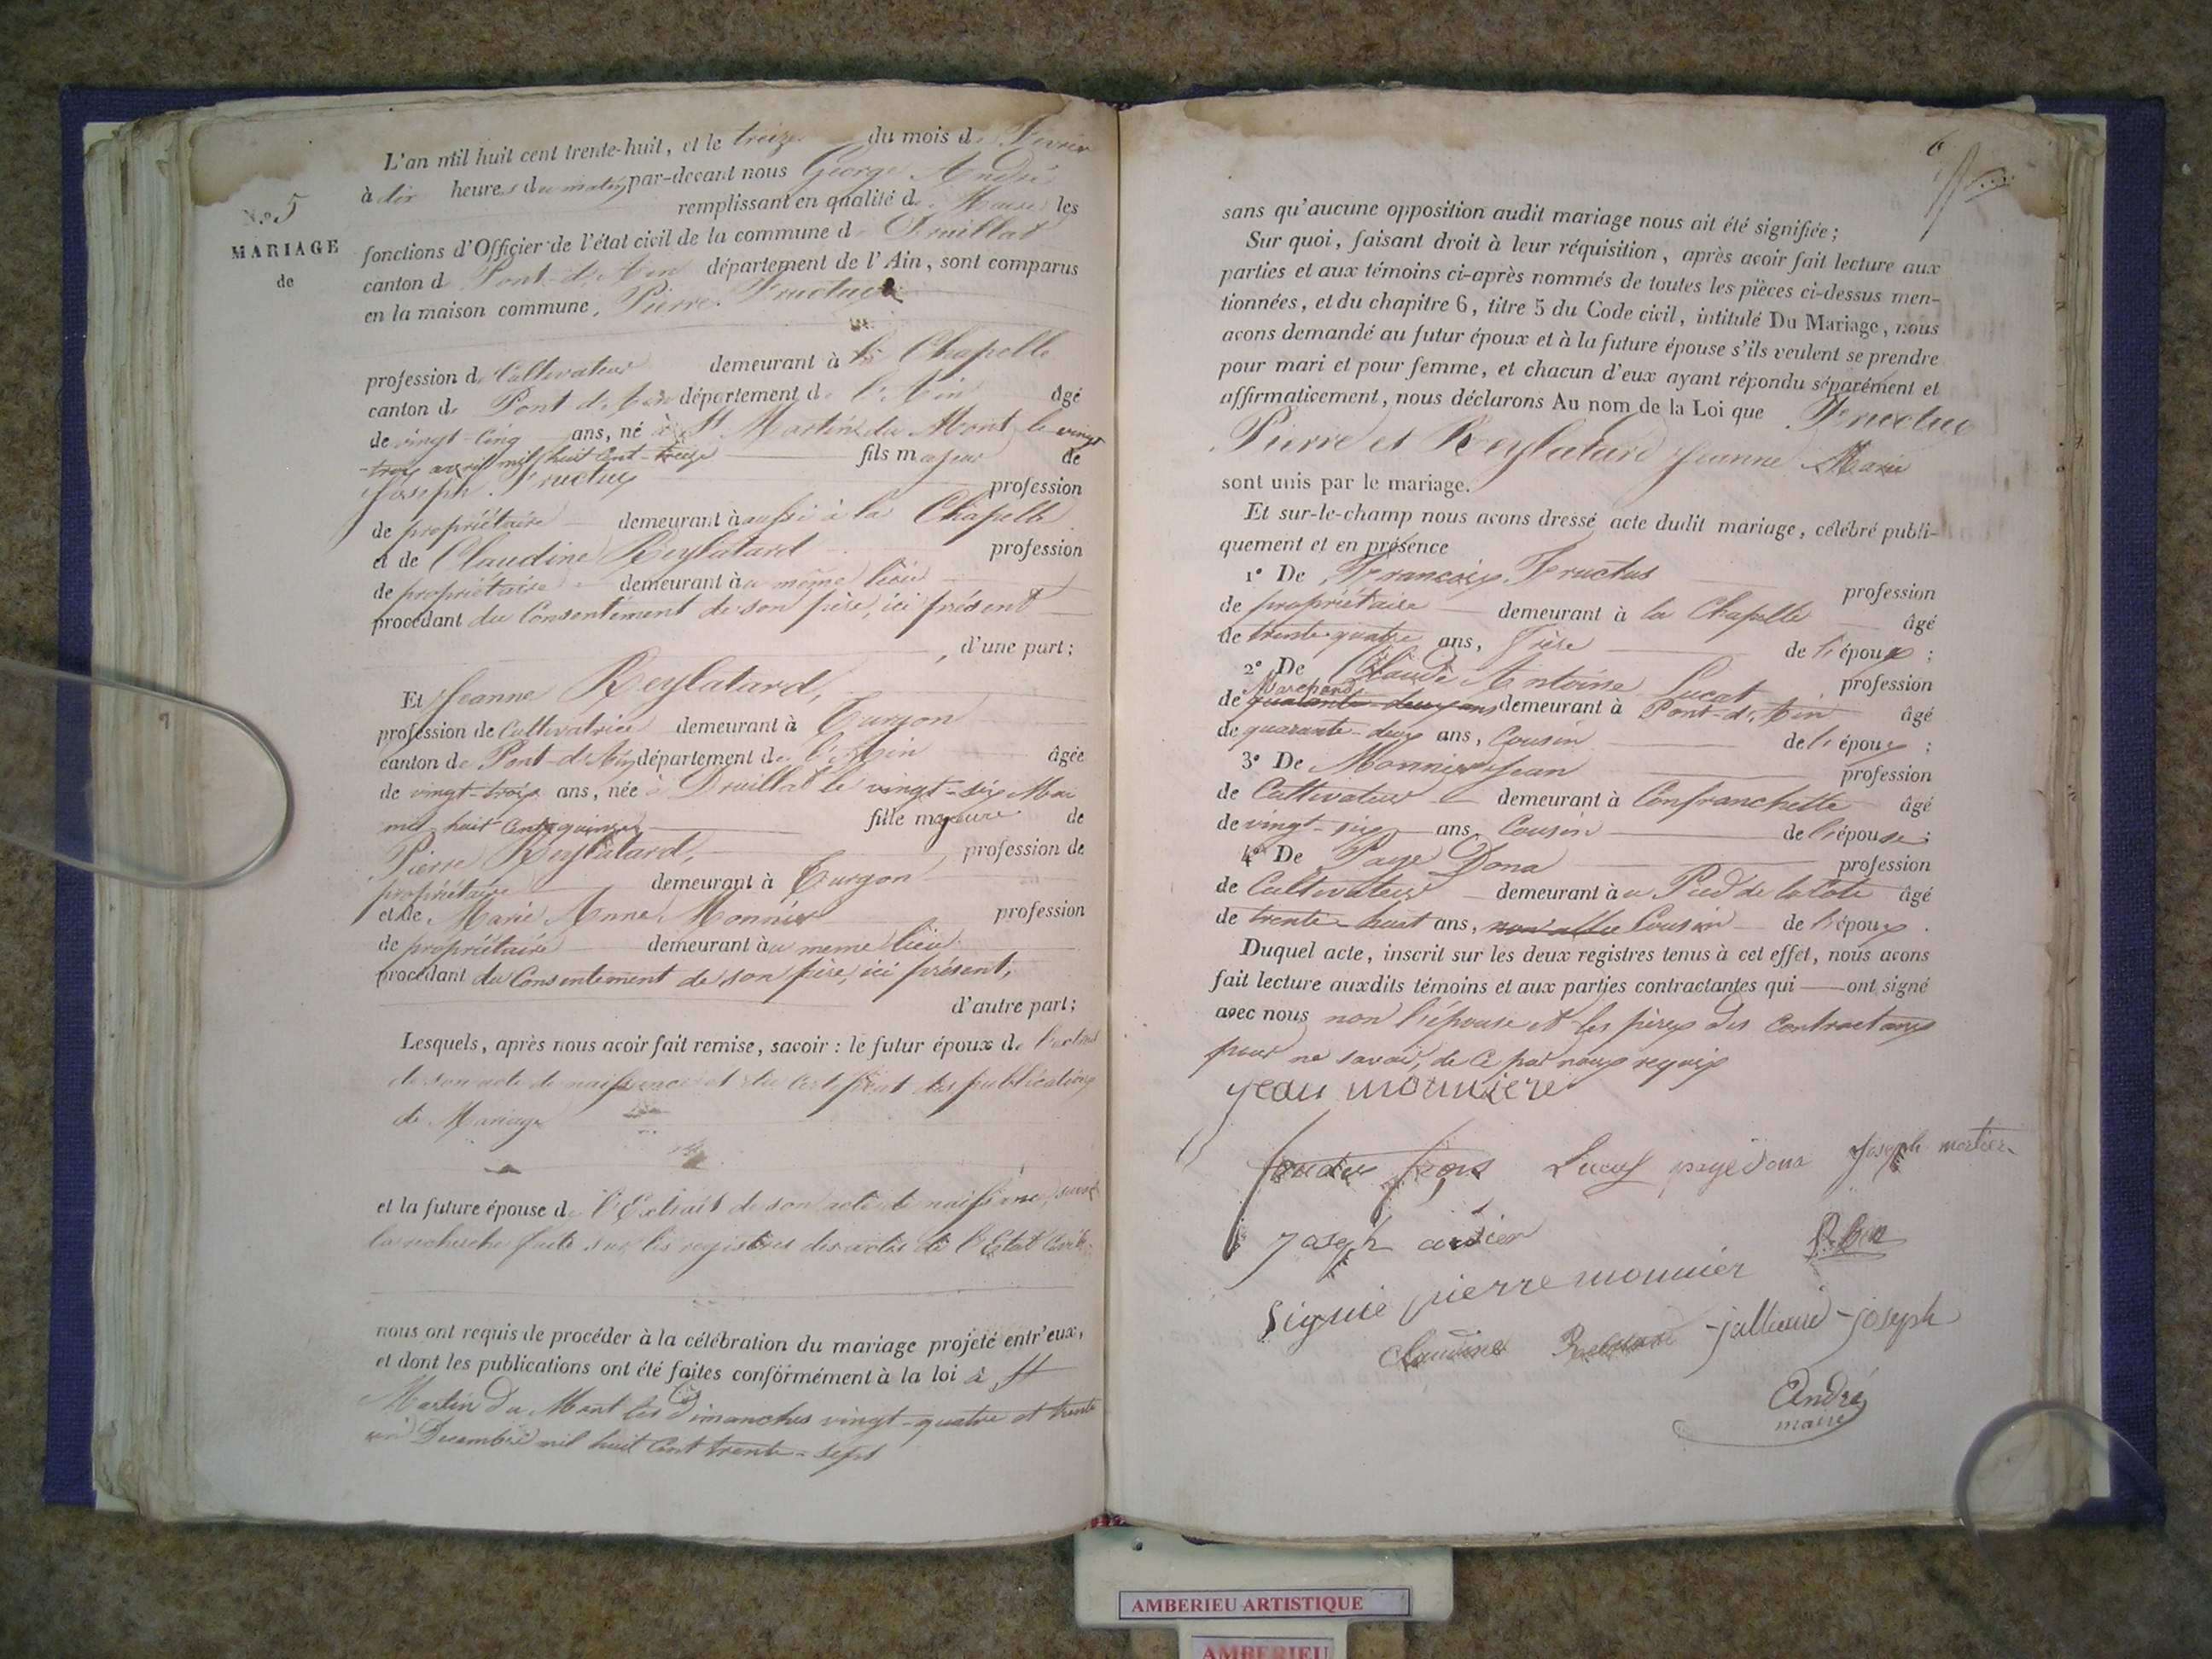 N.o 5
MARIAGE
de
L'an mil huit cent trente-huit, et le treize du mois de Fevrier
à dix heures du matin par-devant nous George André
remplissant en qualité de Maire les
fonctions d'Officier de l'état civil de la commune d Druillat
canton d Pont-d'Ain département de l'Ain, sont comparus
en la maison commune, Pierre Fructus
profession de Cultivateur demeurant à la Chapelle
canton de Pont d'Ain département de l'Ain âgé
de vingt-cinq ans, né à St Martin du Mont le vingt
-trois avril mil huit cent-treize fils majeur de
Joseph Fructus profession
de propriétaire demeurant à aussi à la Chapelle
et de Claudine Reylatard profession
de propriétaire demeurant au même lieu
procédant du Consentement de son père, ici présent
, d'une part;
Et Jeanne Reylatard,
profession de Cultivatrice demeurant à Turgon
canton de Pont-d'Ain département de l'Ain âgée
de vingt-trois ans, née à Druillat le vingt-six Mai
mil-huit cent quinze fille majeure de
Pierre Reylatard, profession de
propriétaire demeurant à Turgon
et de Marie Anne Monnier profession
de propriétaire demeurant au meme lieu
procédant du Consentement de son père, ici présent,
d'autre part;
Lesquels, après nous avoir fait remise, savoir: le futur époux de l'extrait
de son acte de naissance et du certificat des publications
de Mariage
et la future épouse de l'Extrait de son acte de naissance, suivant
la recherche faite sur les registres des actes de l'Etat Civil
nous ont requis de procéder à la célébration du mariage projeté entr'eux,
et dont les publications ont été faites conformément à la loi à St
Martin du Mont les Dimanches vingt-quatre et trente
un Decembre mil huit Cent trente-sept
6
sans qu'aucune opposition audit mariage nous ait été signifiée;
Sur quoi, faisant droit à leur réquisition, après avoir fait lecture aux
parties et aux témoins ci-après nommés de toutes les pièces ci-dessus men-
tionnées, et du chapitre 6, titre 5 du Code civil, intitulé Du Mariage, nous
avons demandé au futur époux et à la future épouse s'ils veulent se prendre
pour mari et pour femme, et chacun d'eux ayant répondu séparément et
affirmativement, nous déclarons Au nom de la Loi que Fructus
Pierre et Reylatard Jeanne Marie
sont unis par le mariage.
Et sur-le-champ nous avons dressé acte dudit mariage, célébré publi-
quement et en présence
1° De François Fructus profession
de propriétaire demeurant à la Chapelle âgé
de trente-quatre ans, frère de l'époux;
2° De Claude Antoine Lucat, profession
Marchand
de quarante-deux ans demeurant à Pont-d'Ain âgé
de quarante-deux ans, Cousin de l'époux;
3° De Monnier Jean profession
de Cultivateur demeurant à Confranchette âgé
de vingt-six ans, Cousin de l'épouse;
4° De Page Dona profession
de Cultivateur demeurant au Pied de la Cote âgé
de trente-huit ans, Cousin de l'époux.
Duquel acte, inscrit sur les deux registres tenus à cet effet, nous avons
fait lecture auxdits témoins et aux parties contractantes qui ont signé
avec nous non l'épouse et les pères des contractans
pour ne savoir, de ce par nous requis
jean monniere
Joseph mortier
Joseph
signie pierre monnier
Claudine joseph
André
maire
AMBERIEU ARTISTIQUE
AMBERIEU